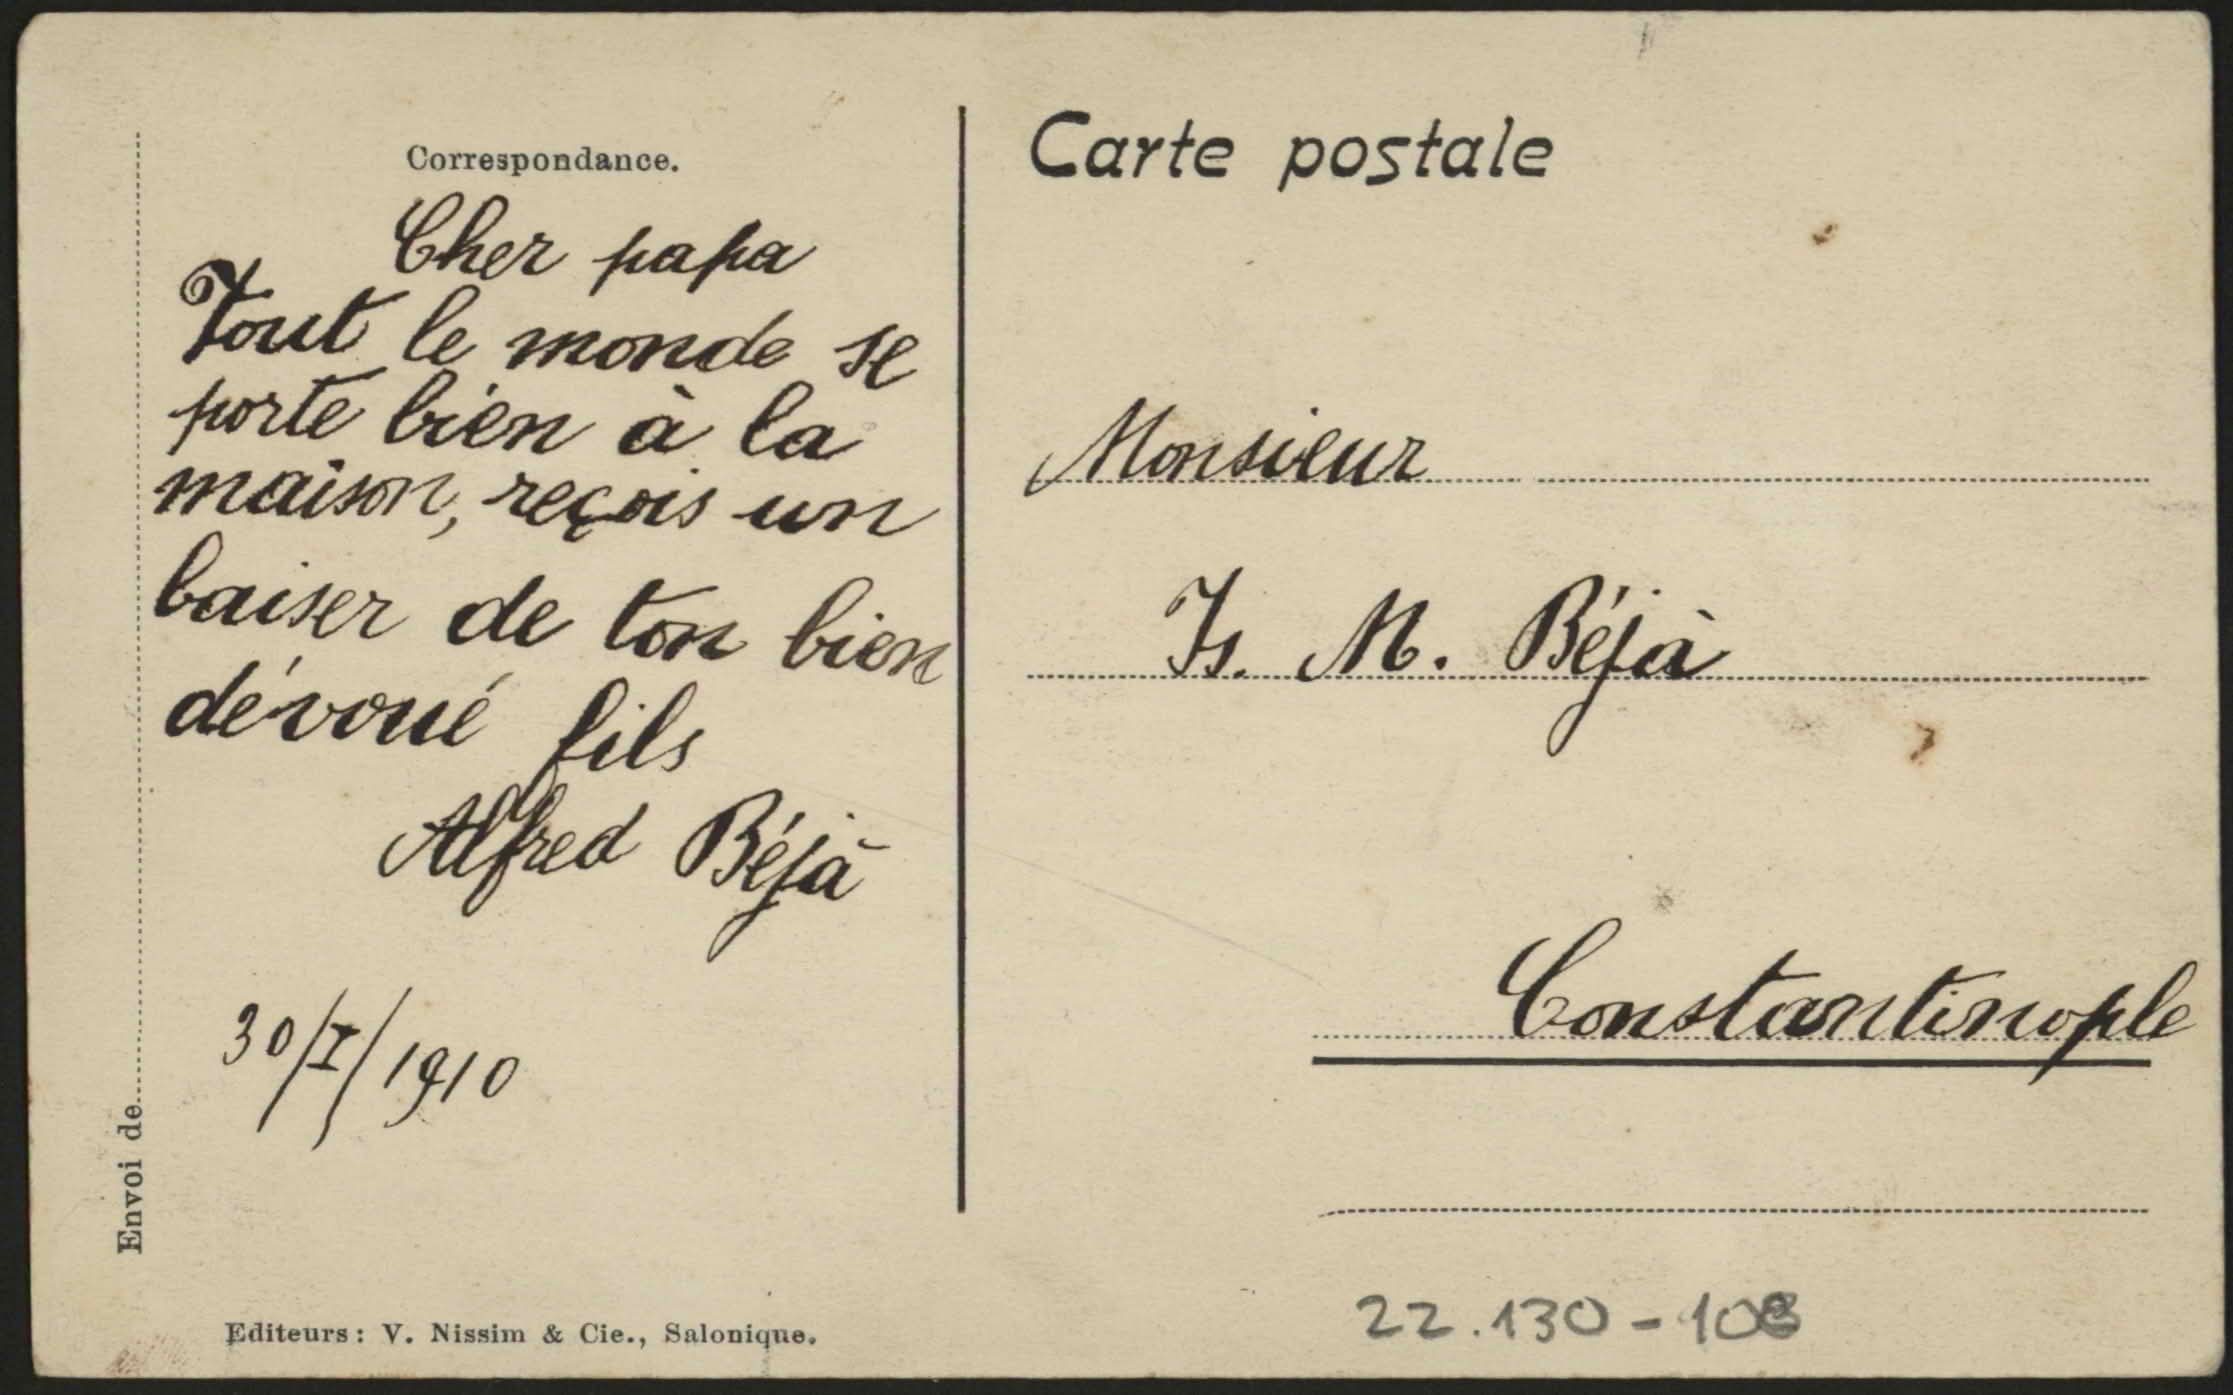 Correspondance.
Cher papa
Tout le monde se
porte bien à la
maison, reçois un
baiser de ton bien
dévoué fils
Alfred Béjà
30/I/1910
Envoi de
Editeurs: V. Nissim & Cie., Salonique.
Carte postale
Monsieur
Is. M. Béjà
Constantinople
22.130-108